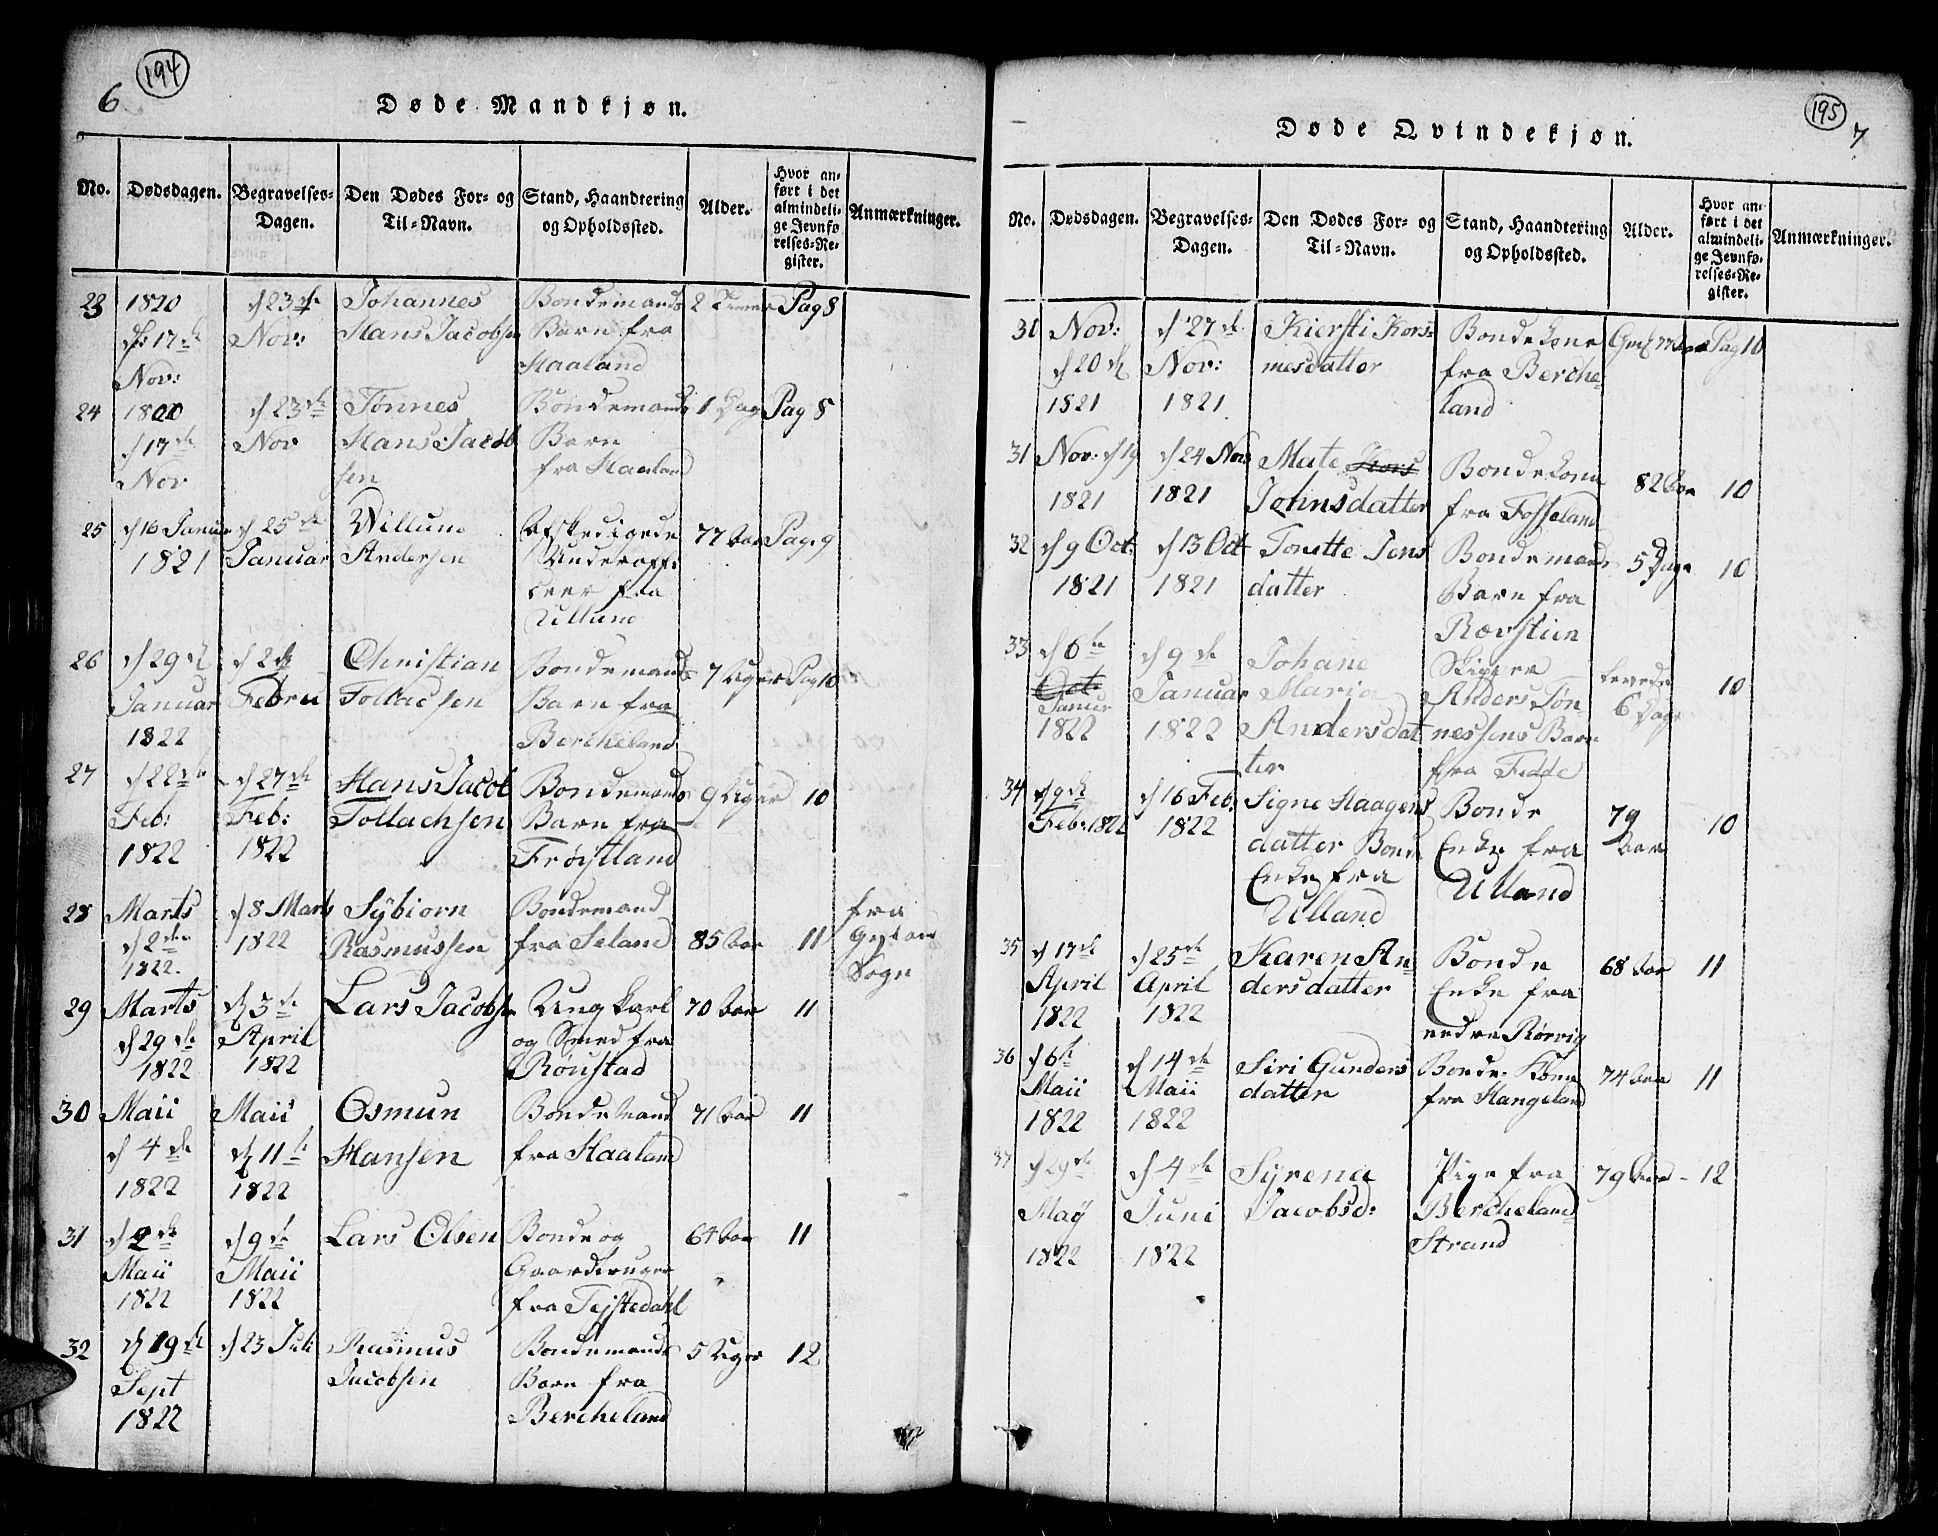 194
6
Døde Mandkjøn.
No. Dødsdagen. Begravelses-Dagen. Den Dødes For- og Til-Navn. Stand, Haandtering og Opholdssted. Alder. Hvor anført i det almindelige Jevnførelses-Register. Anmærkninger.
23 1820 d 23de Johannes Bondemands 2 Timer Pag 8
d: 17de Nov: Hans Jacobsen Barn fra
Nov: Haaland
24 1820 d 23de Tønnes Bondemands 1 Dag Pag 8
d 17de Nov Hans Jacob Barn
Nov sen fra Haaland
25 d 16 Januar d 25de Villum Afskedigede 77 Aar Pag. 9
1821 Januar Andersen Underoffi
ceer fra
Ullund
26 d 29de d 2de Christian Bondemands 7 Uger Pag 10
Januar Febru Tollacsen Barn fra
1822 Bercheland
27 d 22de d 27de Hans Jacob Bondemands 9 Uger 10
Feb: Feb: Tollachsen Barn fra
1822 1822 Frøistland
28 Marts d 8 Marts Sÿbiorn Bondemand fra
d 2den 1822 Rasmussen fra Seland 85 Aar 11
1822. Sogn
29 Marts d 3de Lars Jacobsen Ung karl 70 Aar 11
d 29de April og Smed fra
1822 1822 Røustad
30 Maii Maii Osmun Bondemand 71 Aar 11
d 4de d 11te Hansen fra Haaland
1822 1822
31 d 2de d 9de Lars Olsen Bonde og 64 Aar 11
Maii Maii Gaardbruger
1822 1822 fra Tejstedahl
32 d 19de d 23 Juli Rasmus Bondemands 5 Uger 12
Sept Jacobsen Barn fra
1822 Bercheland
195
7
Døde Qvindekjøn.
No. Dødsdagen. Begravelses-Dagen. Den Dødes For- og Til-Navn. Stand, Haandtering og Opholdssted. Alder. Hvor anført i det almindelige Jevnførelses-Register. Anmærkninger.
30 Nov: d 27de Kiersti Kors- Bondekone Pag 10
d 20de Nov: mesdatter fra Berche-
1821 1821 land
31 Nov: d 19 d 24 Nov Mate Kors Bondekone 82 Aar 10
1821 1821 Johnsdatter fra Fosseland
32 d 9 Oct: d 13 Oct Tomtte Jens Bondemands 5 Dage 10
1821 1821 datter Barn fra
Rævstien
33 d 6te d 9de Johane Skipper levede 10
Octo Januar Maria Anders Tøn- 6 Dage
Januar
1822 1822 Andersdat nessens Barn
ter fra Fedde
34 d 9de d 16 Feb. Signe Haagens Bonde 79 10
Feb: 1822 1822 datter Bonde Enke fra Aar
Enke fra Ulland
Ulland
35 d 17de d 25de Karen An- Bonde 68 Aar 11
April April dersdatter Enke fra
1822 1822 nedre Rørvig
36 d 6te d 14de Siri Gunders Bonde Kone 74 Aar 11
Maii Maii datter fra Hangeland
1822 1822
37 d 29de d 4de Syrena Pige fra 79 Aar - 12
Maÿ Juni Jacobsd: Bercheland
1822 1822 Strand